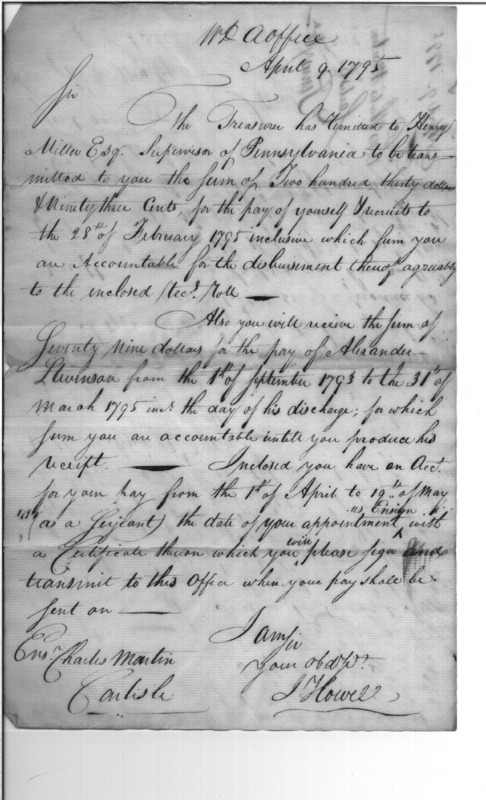 WD A office
April 9 1795
Sir
The Treasurer has remitted to Henry
Miller Esqr. Supervisor of Pennsylvania to be trans-
mitted to you the sum of Two hundred thirty dollars
& Ninety three Cents, for the pay of yourself & recruits to
the 28th of February 1795 inclusive which sum you
are Accountable for the disbursement thereof agreeably
to the inclosed Rect. Roll —
Also you will receive the sum of
Seventy Nine dollars for the pay of Alexander
Stevinson from the 1st of September 1793 to the 31st of
March 1795 incl. the day of his discharge; for which
sum you are accountable untill you produce his
receipt. — Inclosed you have an Acct.
for your pay from the 1st of April to 19th of May
as Ensign
(as a Serjeant) the date of your appointment ^ with
a Certificate thereon which you will please sign and
transmit to this Office when your pay shall be
sent on —
I am Sir
Ensn. Charles Martin
Your Obd. St.
Carlisle
J Howell